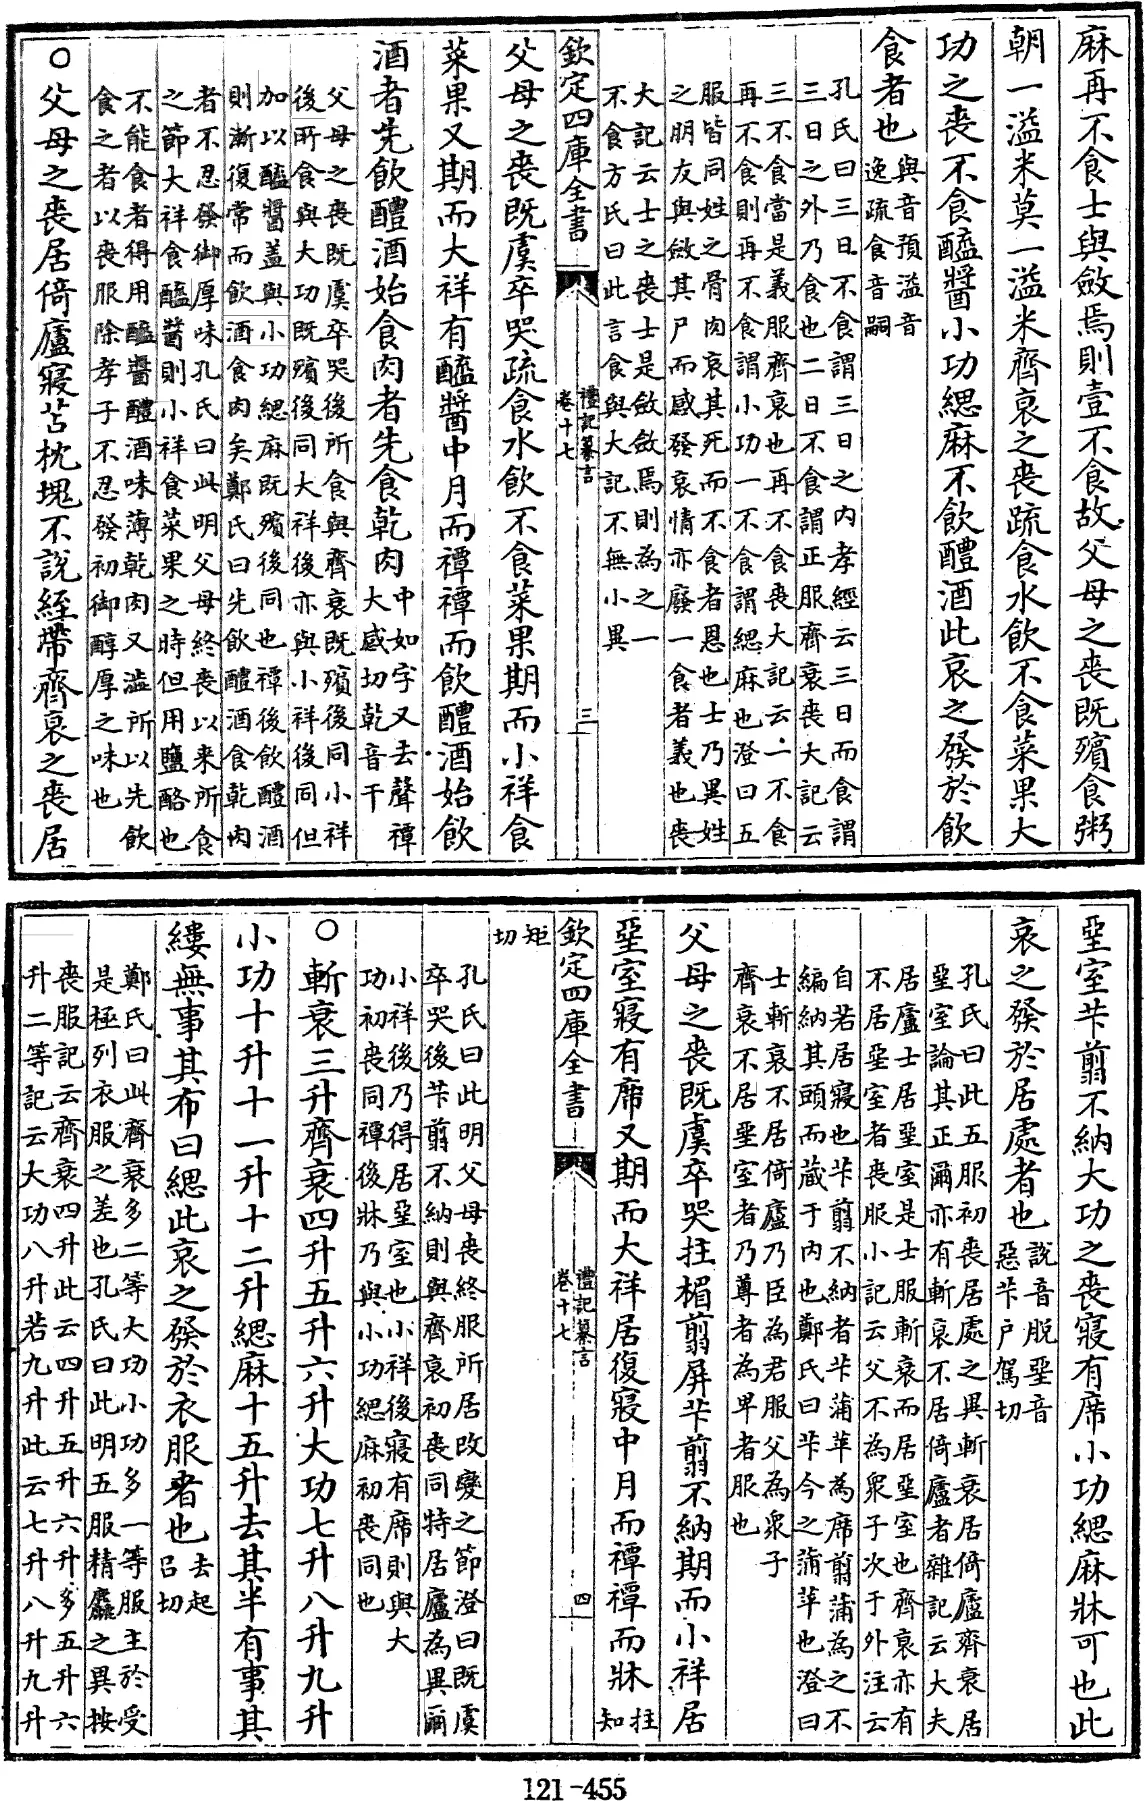 麻再不食士與斂焉則壹不食故父母之喪既殯食粥
朝一溢米莫一溢米齊衰之喪疏食水飲不食菜果大
功之喪不食醯醬小功緦麻不飲醴酒此哀之發於飲
食者也與音預溢音
逸疏食音嗣
孔氏曰三日不食謂三日之内孝經云三日而食謂
三日之外乃食也二日不食謂正服齊衰喪大記云
三不食當是義服齊衰也再不食喪大記云一不食
再不食則再不食謂小功一不食謂緦麻也澄曰五
服皆同姓之骨肉哀其死而不食者恩也士乃異姓
之朋友與斂其尸而感發哀情亦廢一食者義也喪
大記云士之喪士是斂斂焉則為之一
不食方氏曰此言食與大記不無小異
欽定四庫全書
禮記纂言
卷十七
三
父母之喪既虞卒哭疏食水飲不食菜果期而小祥食
菜果又期而大祥有醯醬中月而禫禫而飲醴酒始飲
酒者先飲醴酒始食肉者先食乾肉中如字又去聲禫
大感切乾音干
父母之喪既虞卒哭後所食與齊衰既殯後同小祥
後所食與大功既殯後同大祥後亦與小祥後同但
加以醯醬蓋與小功緦麻既殯後同也禫後飲醴酒
則漸復常而飲酒食肉矣鄭氏曰先飲醴酒食乾肉
者不忍發御厚味孔氏曰此明父母終喪以來所食
之節大祥食醯醬則小祥食菜果之時但用鹽酪也
不能食者得用醯醬醴酒味薄乾肉又澁所以先飲
食之者以喪服除孝子不忍發初御醇厚之味也
○父母之喪居倚廬寢苫枕塊不說絰帶齊衰之喪居
堊室苄翦不納大功之喪寢有席小功緦麻牀可也此
哀之發於居處者也說音脱堊音
惡苄戸駕切
孔氏曰此五服初喪居處之異斬衰居倚廬齊衰居
堊室論其正爾亦有斬衰不居倚廬者雜記云大夫
居廬士居堊室是士服斬衰而居堊室也齊衰亦有
不居堊室者喪服小記云父不為衆子次于外注云
自若居寢也苄翦不納者苄蒲苹為席翦蒲為之不
編納其頭而藏于内也鄭氏曰苄今之蒲苹也澄曰
士斬衰不居倚廬乃臣為君服父為衆子
齊衰不居堊室者乃尊者為卑者服也
父母之喪既虞卒哭拄楣翦屏苄翦不納期而小祥居
堊室寢有席又期而大祥居復寢中月而禫禫而牀拄
知
欽定四庫全書
禮記纂言
卷十七
四
矩
切
孔氏曰此明父母喪終服所居改變之節澄曰既虞
卒哭後苄翦不納則與齊衰初喪同特居廬為異爾
小祥後乃得居堊室也小祥後寢有席則與大
功初喪同禫後牀乃與小功緦麻初喪同也
○斬衰三升齊衰四升五升六升大功七升八升九升
小功十升十一升十二升緦麻十五升去其半有事其
縷無事其布曰緦此哀之發於衣服者也去起
呂切
鄭氏曰此齊衰多二等大功小功多一等服主於受
是極列衣服之差也孔氏曰此明五服精麤之異按
喪服記云齊衰四升此云四升五升六升多五升六
升二等記云大功八升若九升此云七升八升九升
121-455